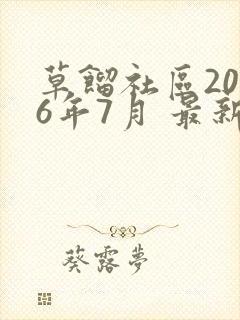 草餾社區20
6年7月 最新
葵露夢